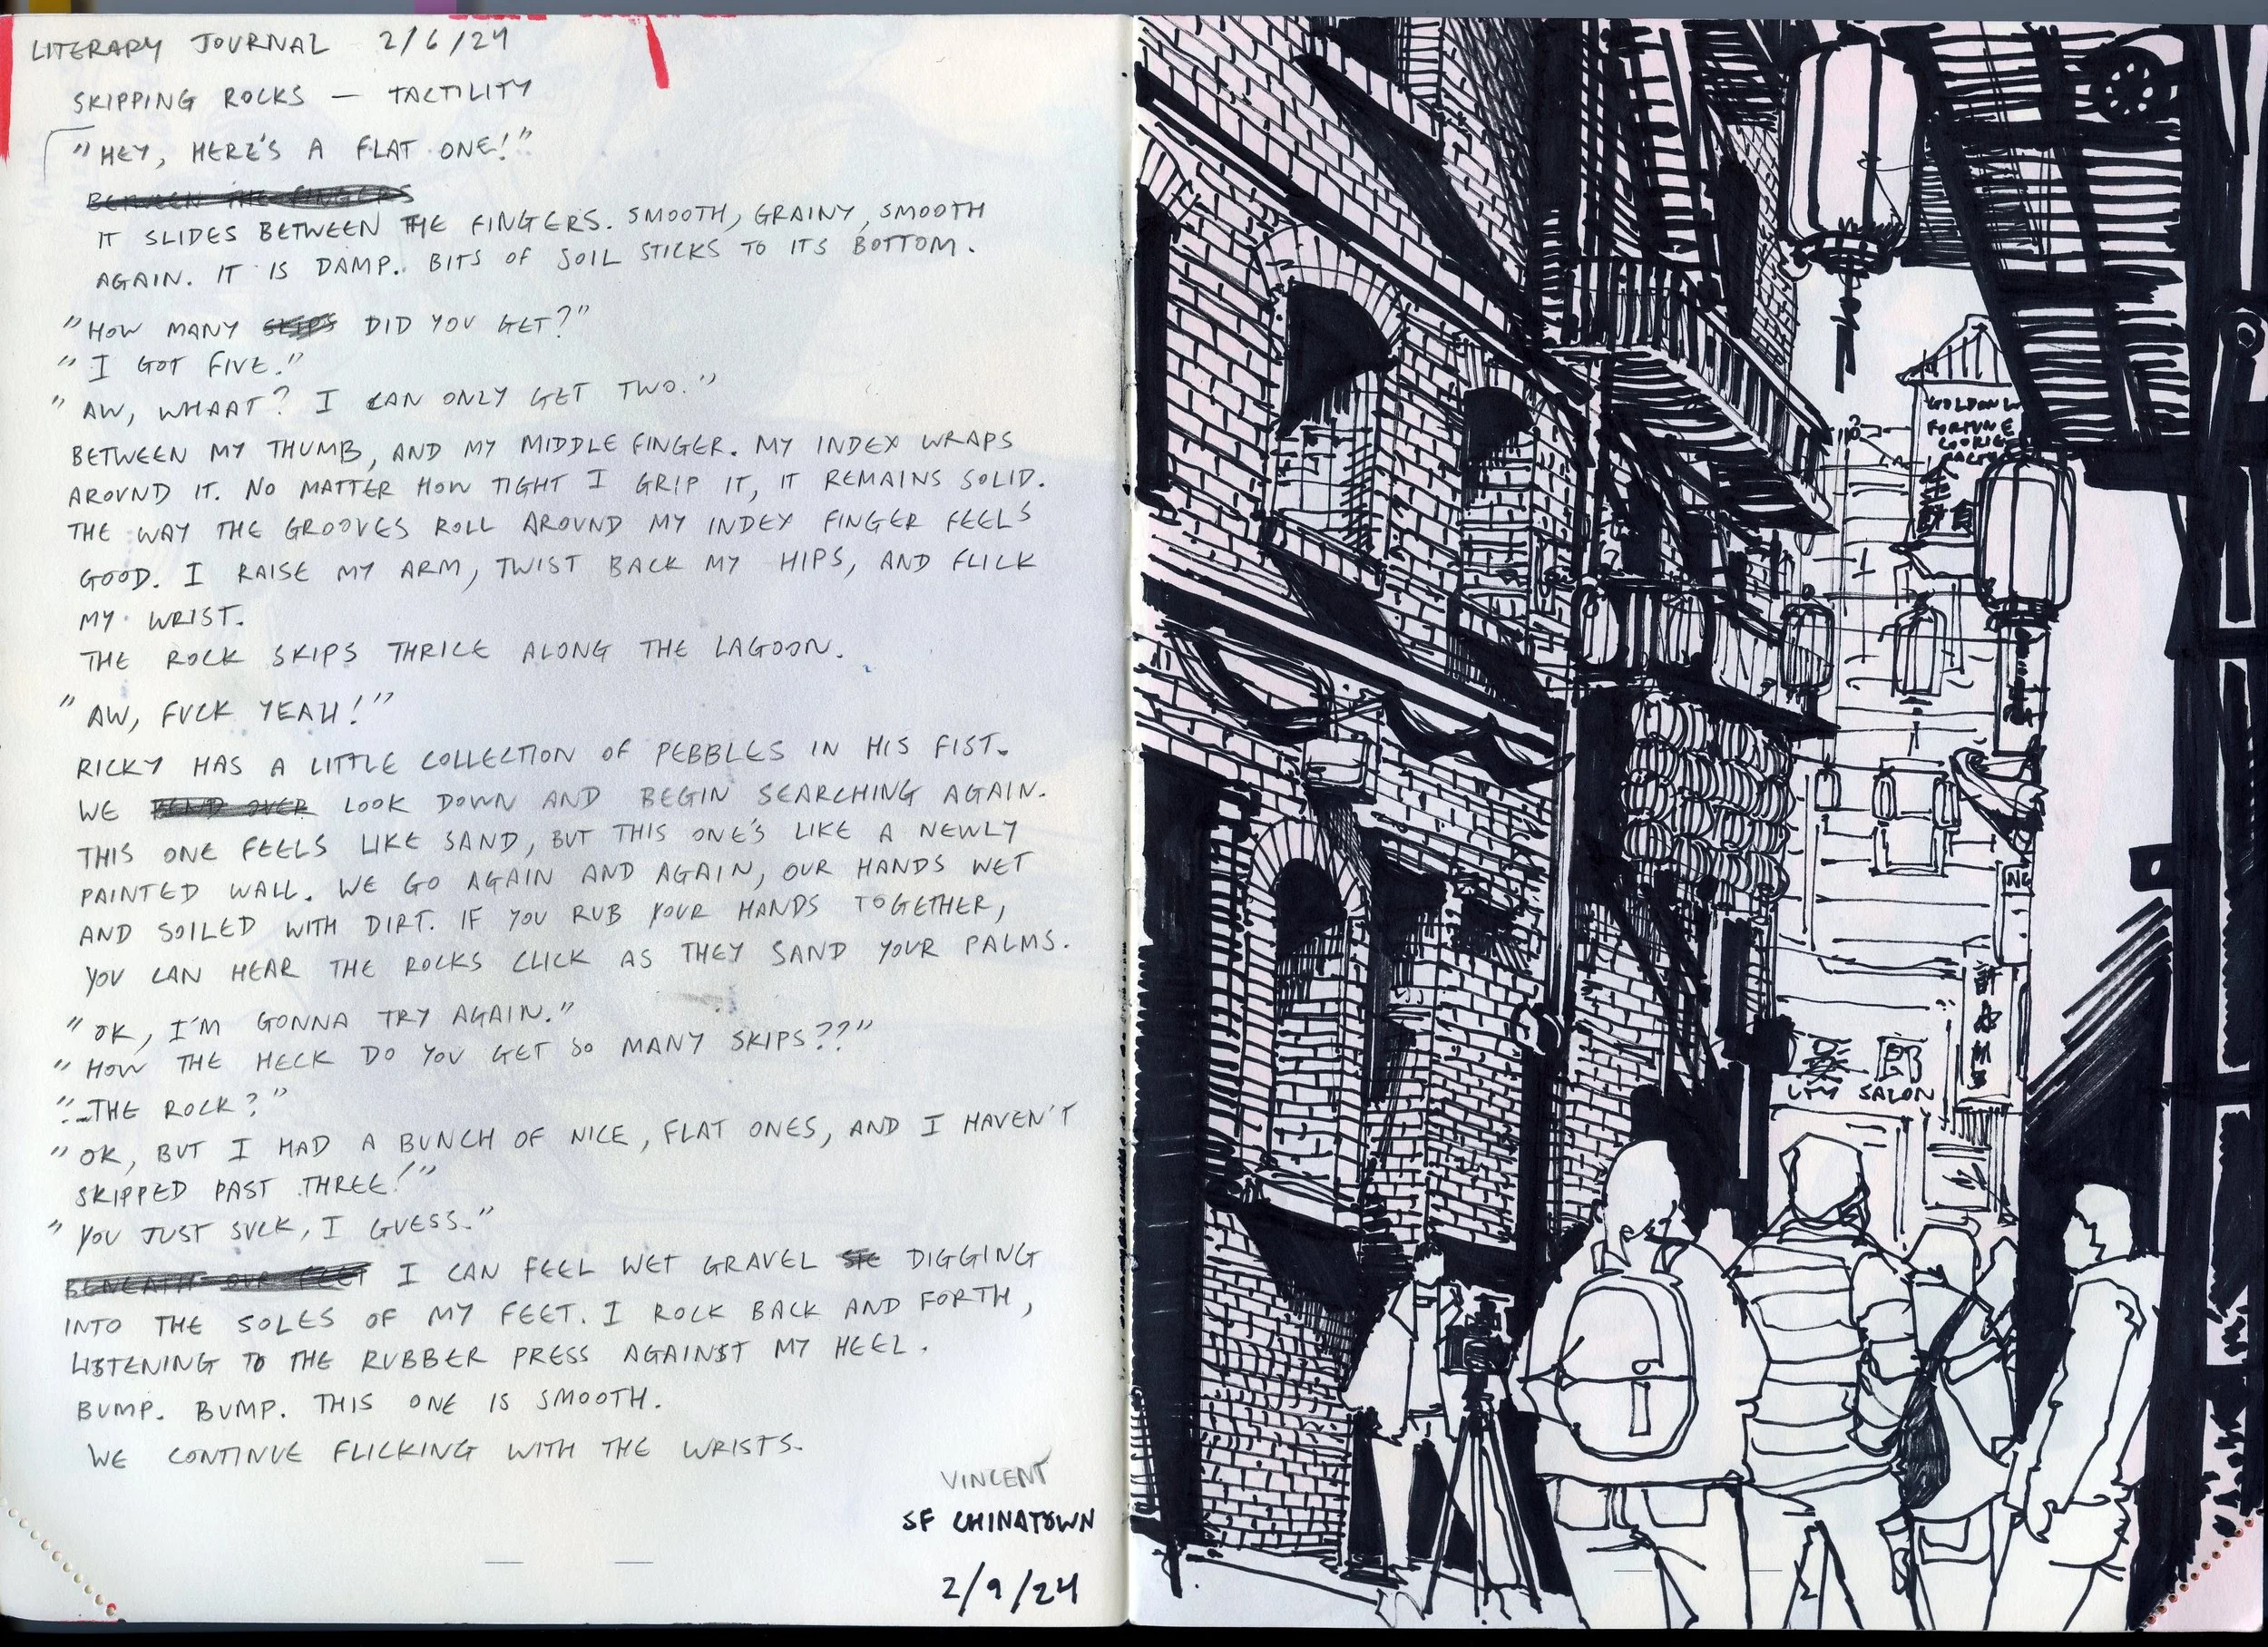 LITERARY JOURNAL 2/6/24
SKIPPING ROCKS — TACTILITY
"HEY, HERE'S A FLAT ONE!"
BETWEEN THE FINGERS
IT SLIDES BETWEEN THE FINGERS. SMOOTH, GRAINY, SMOOTH
AGAIN. IT IS DAMP. BITS OF SOIL STICKS TO ITS BOTTOM.
"HOW MANY SKIPS DID YOU GET?"
"I GOT FIVE."
"AW, WHAAT? I CAN ONLY GET TWO."
BETWEEN MY THUMB, AND MY MIDDLE FINGER. MY INDEX WRAPS
AROUND IT. NO MATTER HOW TIGHT I GRIP IT, IT REMAINS SOLID.
THE WAY THE GROOVES ROLL AROUND MY INDEX FINGER FEELS
GOOD. I RAISE MY ARM, TWIST BACK MY HIPS, AND FLICK
MY WRIST.
THE ROCK SKIPS THRICE ALONG THE LAGOON.
"AW, FUCK YEAH!"
RICKY HAS A LITTLE COLLECTION OF PEBBLES IN HIS FIST.
WE BEND OVER LOOK DOWN AND BEGIN SEARCHING AGAIN.
THIS ONE FEELS LIKE SAND, BUT THIS ONE'S LIKE A NEWLY
PAINTED WALL. WE GO AGAIN AND AGAIN, OUR HANDS WET
AND SOILED WITH DIRT. IF YOU RUB YOUR HANDS TOGETHER,
YOU CAN HEAR THE ROCKS CLICK AS THEY SAND YOUR PALMS.
"OK, I'M GONNA TRY AGAIN."
"HOW THE HECK DO YOU GET SO MANY SKIPS??"
"..THE ROCK?"
"OK, BUT I HAD A BUNCH OF NICE, FLAT ONES, AND I HAVEN'T
SKIPPED PAST THREE!"
"YOU JUST SUCK, I GUESS."
BENEATH OUR FEET I CAN FEEL WET GRAVEL DIGGING
INTO THE SOLES OF MY FEET. I ROCK BACK AND FORTH,
LISTENING TO THE RUBBER PRESS AGAINST MY HEEL.
BUMP. BUMP. THIS ONE IS SMOOTH.
WE CONTINUE FLICKING WITH THE WRISTS.
VINCENT
SF CHINATOWN
2/9/24
FORTUNE
SALON